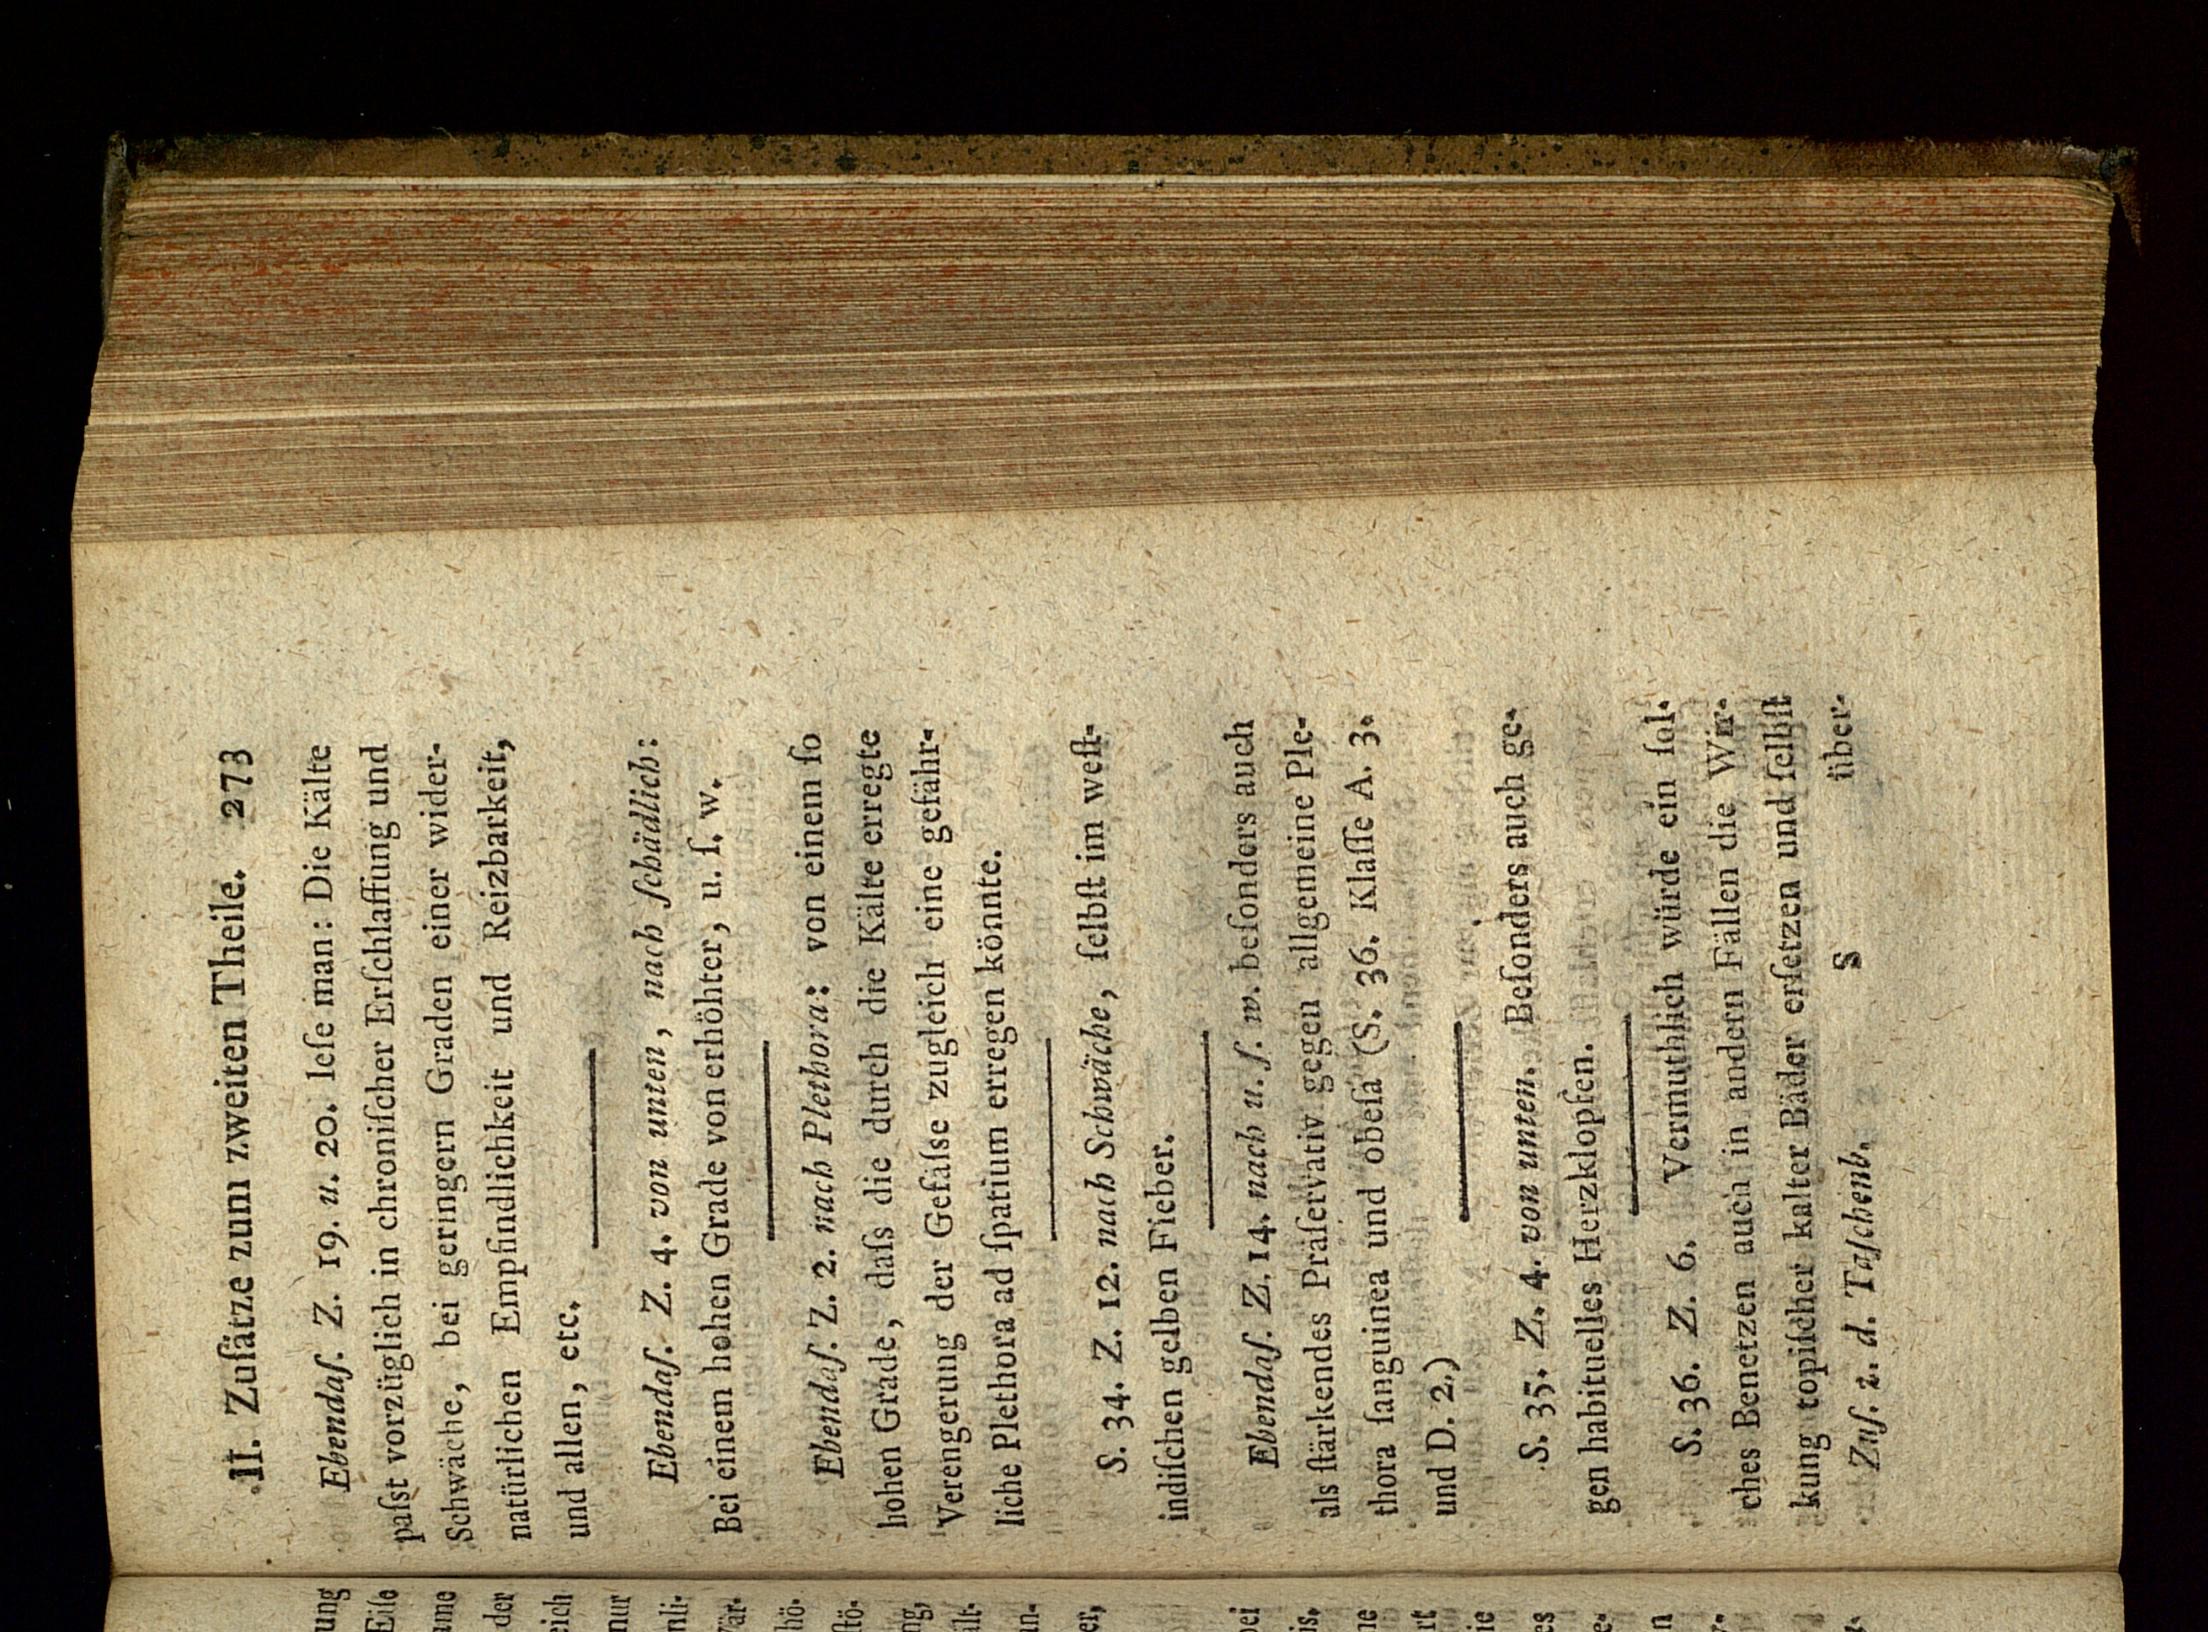 II. Zuſätze zum zweiten Theile. 273
Ebendaſ. Z. 19. u. 20. leſe man: Die Kälte
paſst vorzüglich in chroniſcher Erſchlaffung und
Schwäche, bei geringern Graden einer wider-
natürlichen Empfindlichkeit und Reizbarkeit,
und allen, etc.
Ebendaſ. Z. 4. von unten, nach ſchädlich:
Bei einem hohen Grade von erhöhter, u. ſ. w.
Ebendaſ. Z. 2. nach Plethora: von einem ſo
hohen Grade, daſs die durch die Kälte erregte
Verengerung der Gefäſse zugleich eine gefähr-
liche Plethora ad ſpatium erregen könnte.
S. 34. Z. 12. nach Schwäche, ſelbſt im weſt-
indiſchen gelben Fieber.
Ebendaſ. Z. 14. nach u. ſ. w. beſonders auch
als ſtärkendes Präſervativ gegen allgemeine Ple-
thora ſanguinea und obeſa (S. 36. Klaſſe A. 3.
und D. 2.)
S. 35. Z. 4. von unten. Beſonders auch ge-
gen habituelles Herzklopfen.
S. 36. Z. 6. Vermuthlich würde ein ſol-
ches Benetzen auch in andern Fällen die Wir-
kung topiſcher kalter Bäder erſetzen und ſelbſt
Zuſ. z. d. Taſchenb. S über-
ung
Eiſe
ame
der
eich
nur
nli-
Vär-
hö-
ſtö-
ng,
ält-
un-
er,
bei
is.
ne
rt
ie
es
e-
n